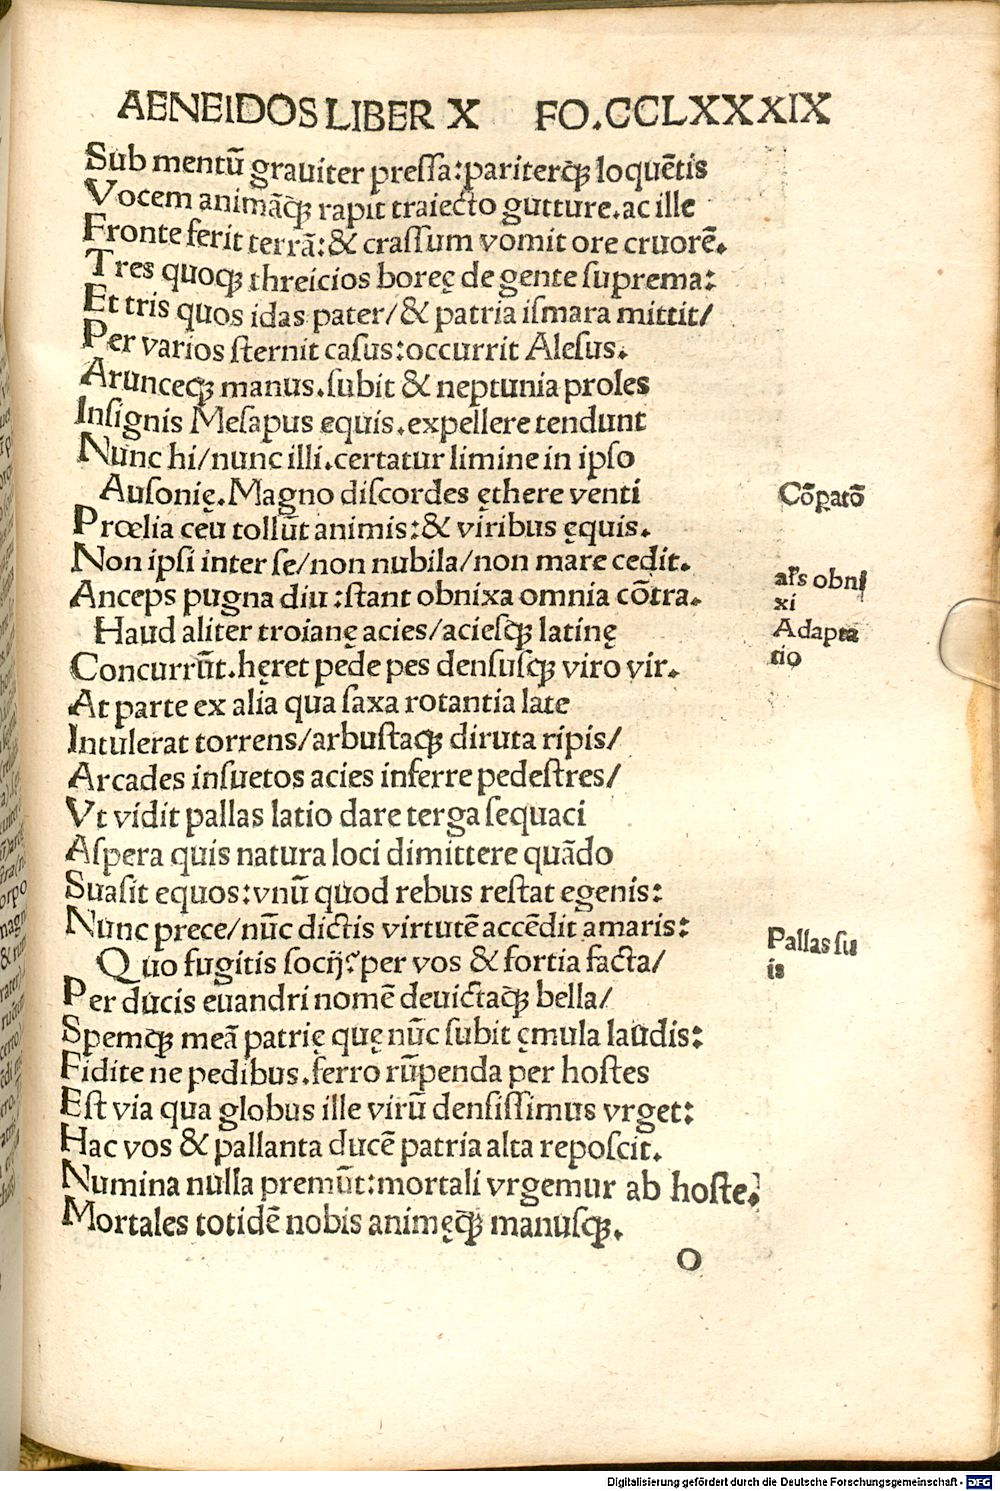 AENEIDOS LIBER X FO.CCLXXXIX
Sub mentū grauiter preſſa:pariterq̃ȝ loquētis
Vocem animāq̃ȝ rapit traiecto gutture.ac ille
Fronte ferit terrā:& craſſum vomit ore cruorē.
Tres quoqȝ threicios boreę de gente ſuprema:
Et tris quos idas pater/& patria iſmara mittit/
Per varios ſternit caſus:occurrit Aleſus.
Arunceq̃ȝ manus.ſubit & neptunia proles
Inſignis Meſapus equis.expellere tendunt
Nunc hi/nunc illi.certatur limine in ipſo
Auſonię.Magno diſcordes ęthere venti
Prœlia ceu tollūt animis:& viribus ęquis.
Non ipſi inter ſe/non nubila/non mare cedit.
Anceps pugna diu:ſtant obnixa omnia cōtra.
Haud aliter troianę acies/acieſq̃ȝ latinę
Concurrūt.hęret pede pes denſuſq̃ȝ viro vir.
At parte ex alia qua ſaxa rotantia late
Intulerat torrens/arbuſtaq̃ȝ diruta ripis/
Arcades inſuetos acies inferre pedeſtres/
Vt vidit pallas latio dare terga ſequaci
Aſpera quis natura loci dimittere quādo
Suaſit equos:vnū quod rebus reſtat egenis:
Nunc prece/nūc dictis virtutē accēdit amaris:
Quo fugitis ſocij?per vos & fortia facta/
Per ducis euandri nomē deuictaq̃ȝ bella/
Spemq̃ȝ meā patrię quę nūc ſubit ęmula laudis:
Fidite ne pedibus.ferro rūpenda per hoſtes
Eſt via qua globus ille virū denſiſſimus vrget:
Hac vos & pallanta ducē patria alta repoſcit.
Numina nulla premūt:mortali vrgemur ab hoſte.
Mortales totidē nobis animęq̃ȝ manuſq̃ȝ.
O
Cōꝑatō
al's obni
xi
Adapta
tio
Pallas ſu
is
Digitalisierung gefördert durch die Deutsche Forschungsgemeinschaft - DFG